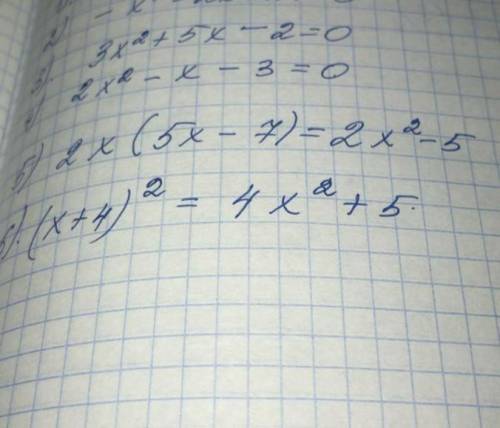 2)
3) 3x² + 5x - 2 = 0
2x² - x - 3 = 0
5) 2x (5x - 7) = 2x² - 5
(x+4)² = 4x² + 5.